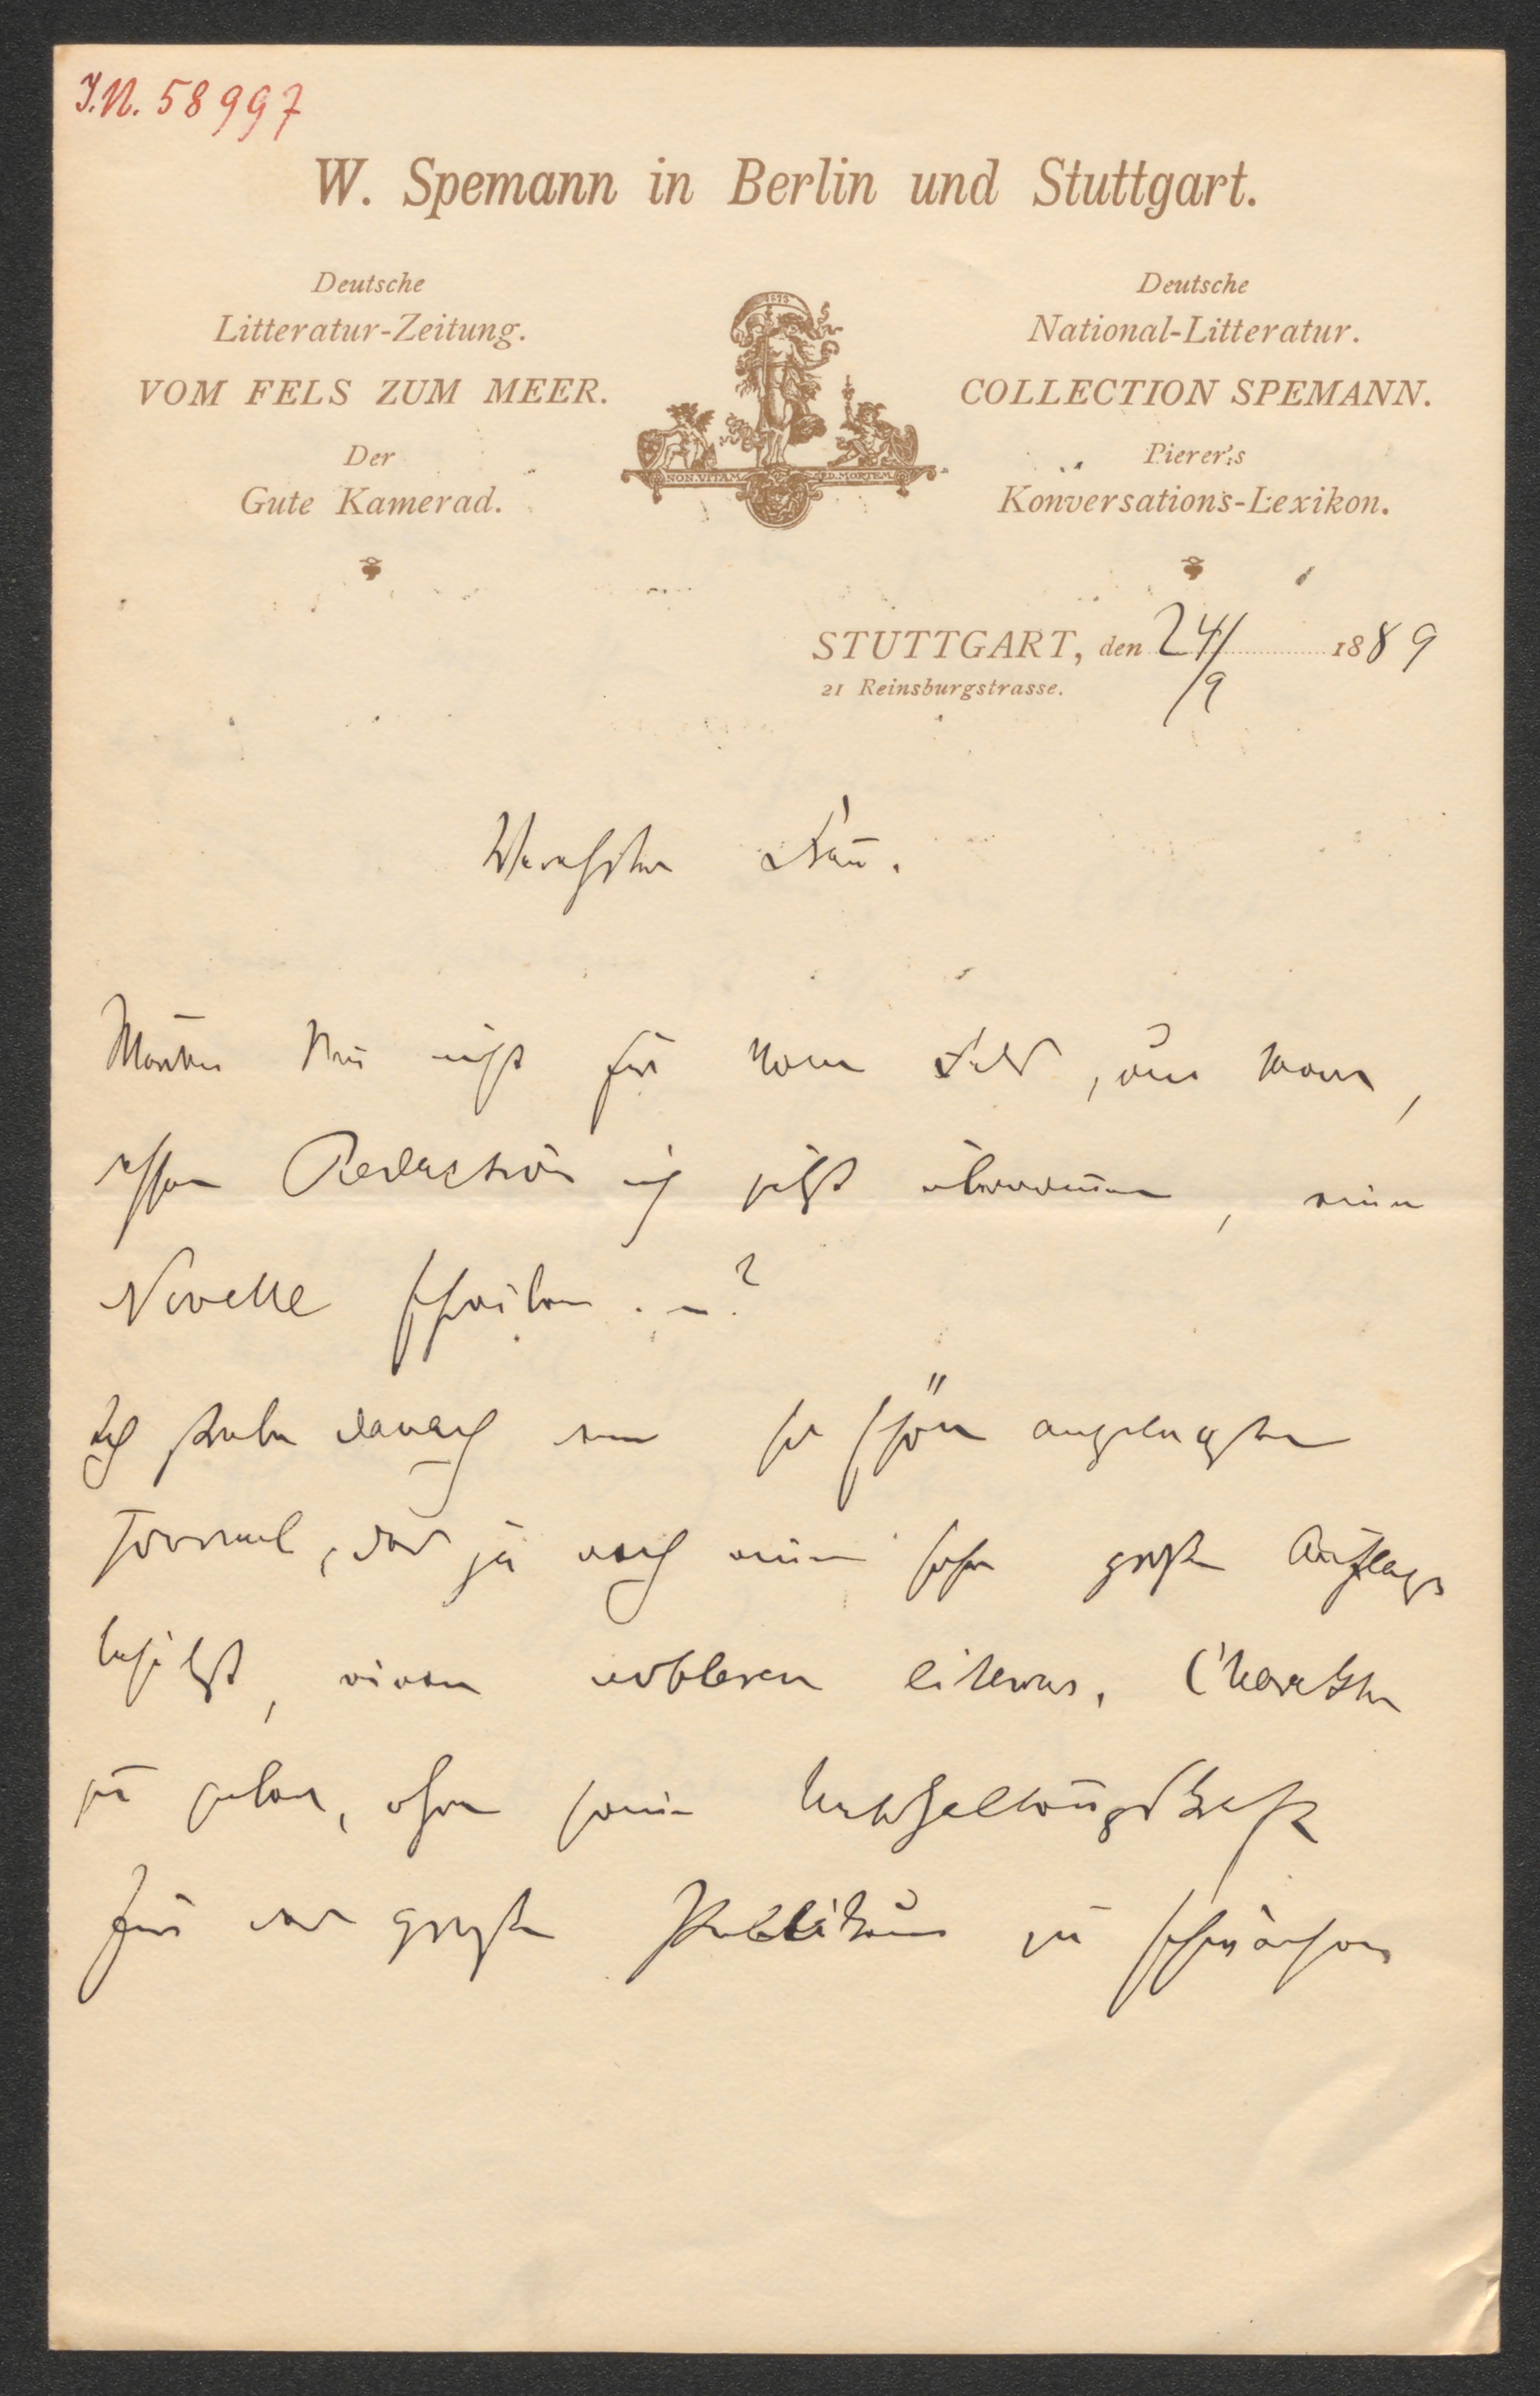 I.N. 58997
W. Spemann in Berlin und Stuttgart.
Deutsche
Litteratur-Zeitung.
VOM FELS ZUM MEER.
Der
Gute Kamerad.
NON. VITAM. SED. MORTEM.
Deutsche
National-Litteratur.
COLLECTION SPEMANN.
Pierer's
Konversations-Lexikon.
STUTTGART, den 24/9 1889
21 Reinsburgstrasse.
Verehrte Frau.
Möchten Sie nicht für Vom Fels zum Meer,
dessen Redaction ich jetzt übernommen, eine
Novelle schreiben. –?
Ich strebe danach dem so schön angelegten
Journal, das ja auch eine sehr große Auflage
besitzt, einen nobleren literar. Charakter
zu geben, ohne seine Unterhaltungskraft
für das große Publikum zu schwächen